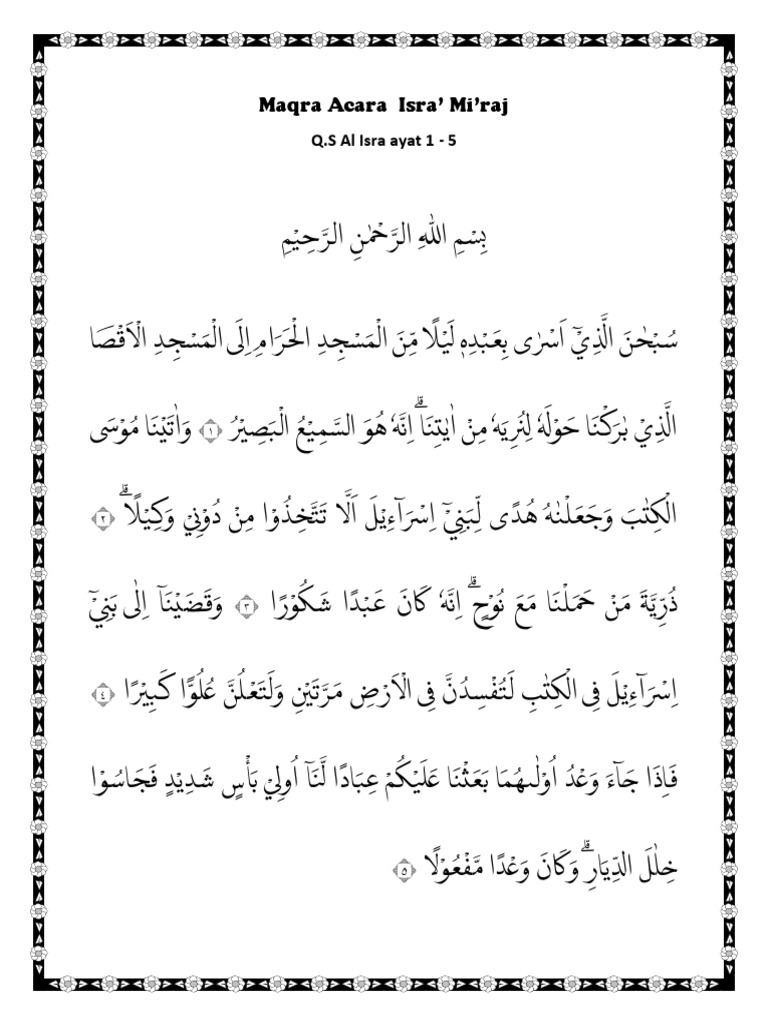 Maqra Acara Isra' Mi'raj
Q.S Al Isra ayat 1 - 5
بِسْمِ اللّٰهِ الرَّحْمٰنِ الرَّحِيْمِ
سُبْحٰنَ الَّذِيْٓ اَسْرٰى بِعَبْدِهٖ لَيْلًا مِّنَ الْمَسْجِدِ الْحَرَامِ اِلَى الْمَسْجِدِ الْاَقْصَا
الَّذِيْ بٰرَكْنَا حَوْلَهٗ لِنُرِيَهٗ مِنْ اٰيٰتِنَاۗ اِنَّهٗ هُوَ السَّمِيْعُ الْبَصِيْرُ ۝١ وَاٰتَيْنَا مُوْسَى
الْكِتٰبَ وَجَعَلْنٰهُ هُدًى لِّبَنِيْٓ اِسْرَاۤءِيْلَ اَلَّا تَتَّخِذُوْا مِنْ دُوْنِيْ وَكِيْلًاۗ ۝٢
ذُرِّيَّةَ مَنْ حَمَلْنَا مَعَ نُوْحٍۗ اِنَّهٗ كَانَ عَبْدًا شَكُوْرًا ۝٣ وَقَضَيْنَآ اِلٰى بَنِيْٓ
اِسْرَاۤءِيْلَ فِى الْكِتٰبِ لَتُفْسِدُنَّ فِى الْاَرْضِ مَرَّتَيْنِ وَلَتَعْلُنَّ عُلُوًّا كَبِيْرًا ۝٤
فَاِذَا جَاۤءَ وَعْدُ اُوْلٰىهُمَا بَعَثْنَا عَلَيْكُمْ عِبَادًا لَّنَآ اُولِيْ بَأْسٍ شَدِيْدٍ فَجَاسُوْا
خِلٰلَ الدِّيَارِۗ وَكَانَ وَعْدًا مَّفْعُوْلًا ۝٥